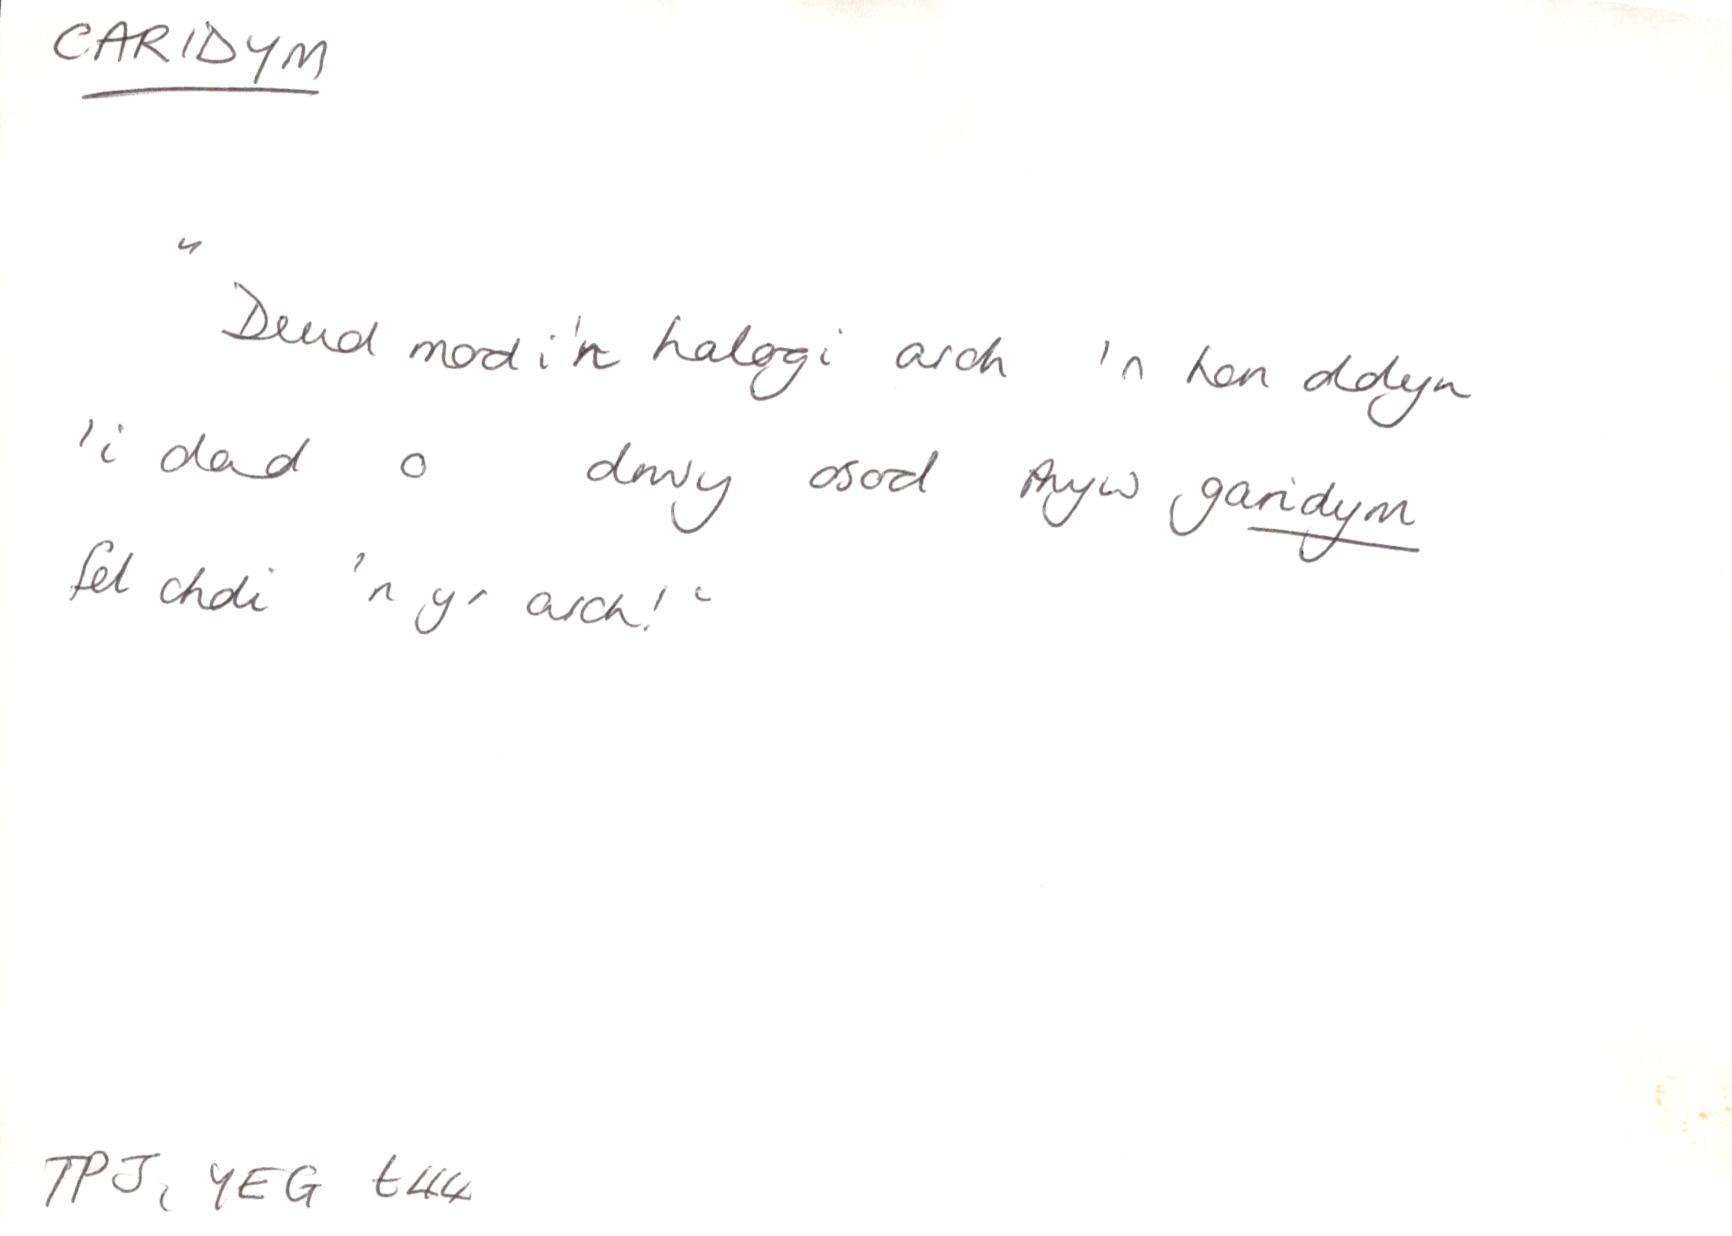 CARIDYM
"Deud mod i'n halogi arch 'n hen ddyn
'i dad o drwy osod rhyw garidym
fel chdi 'n yr arch!"
TPJ, YEG t44